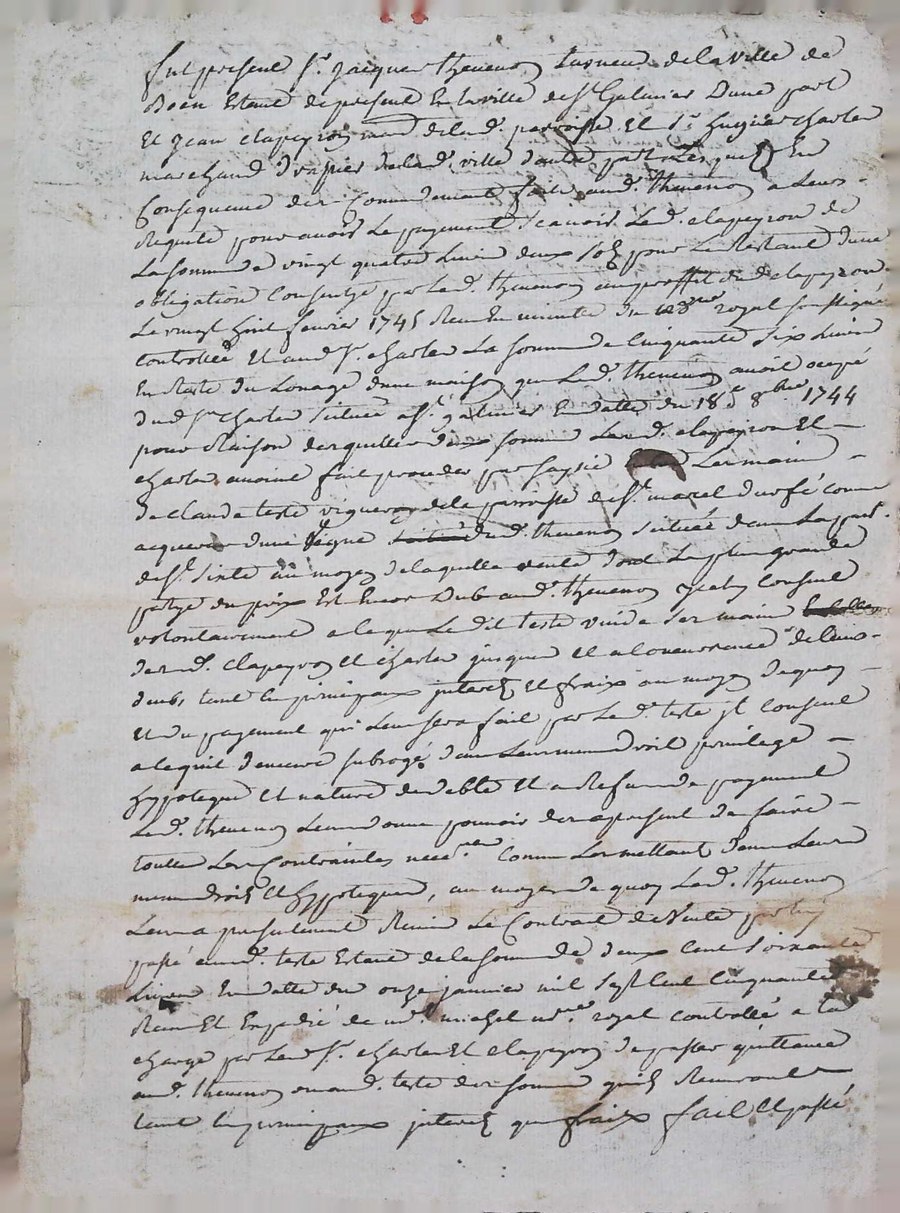 fut present Sr. Jacque thevenon tisneur de la ville de
Boën Estant de present En la ville de St Galmier Dune part
Et Jean clapeyron md de lad. parroisse Et Sr. hugues charles
marchand drapier de lad. ville dautre part Lesquels En
Consequence des Commdement faits aud. thevenon a Leurs
Requete pour avoir Le payement scavoir Led. clapeyron de
La somme de vingt quatre Livres deux sols pour Le Restant dune
obligation Consentye par Led. thevenon au proffit dud. clapeyron
Le vingt huit fevrier 1745 Receu En minutte du nore royal soussigné
Controllée Et aud Sr. charles La somme de Cinquante six Livres
En Reste du Louage dune maison que Led. thevenon avoit ocupé
dud Sr charles scituée a St. galmier En datte du 18e 8bre 1744
pour Raison desquelles deux sommes Lesd. clapeyron Et
charles avoient fait proceder par saysie Les mains
de claude teste vigneron de la parroisse de St. marcel durfé comme
acquereur dune vigne dud. thevenon scituée dans La parr.
de St. Sixte au moyen de laquelle vente dont La plus grande
partye du prix Est Encor Dub aud. thevenon Icelui Consent
volontairement a ce que Ledit teste vuide ses mains
desd. clapeyron Et charles jusques Et a Concurrence de Leurs
dubs, tant En principaux interets Et fraix au moyen de quoy
Et du payement qui Leur sera fait par Led. teste il Consent
a ce quil demeure subrogé dans Leur meme droit privilege
hypoteque Et nature de deble Et a Refus de payement
Led. thevenon Leur donne pouvoir des apresent de faire
toutes Les Contraintes necess.res Comme Les mettant dans Leurs
memes droits Et hypoteques, au moyen de quoy Led. thevenon
Leur a presentement Remis Le Contract de Vente par luy
passé aud. teste Estant de la somme de deux Cent soixante
Livres En datte du onze janvier mil sept Cent Cinquante
Receu Et Expedié de md. michel nore. royal Controllé a la
charge par Led. Sr. charles Et clapeyron de passer quittance
aud. thevenon ou aud. teste des somme quils Recevront
tant En principaux interets que fraix fait Et passé